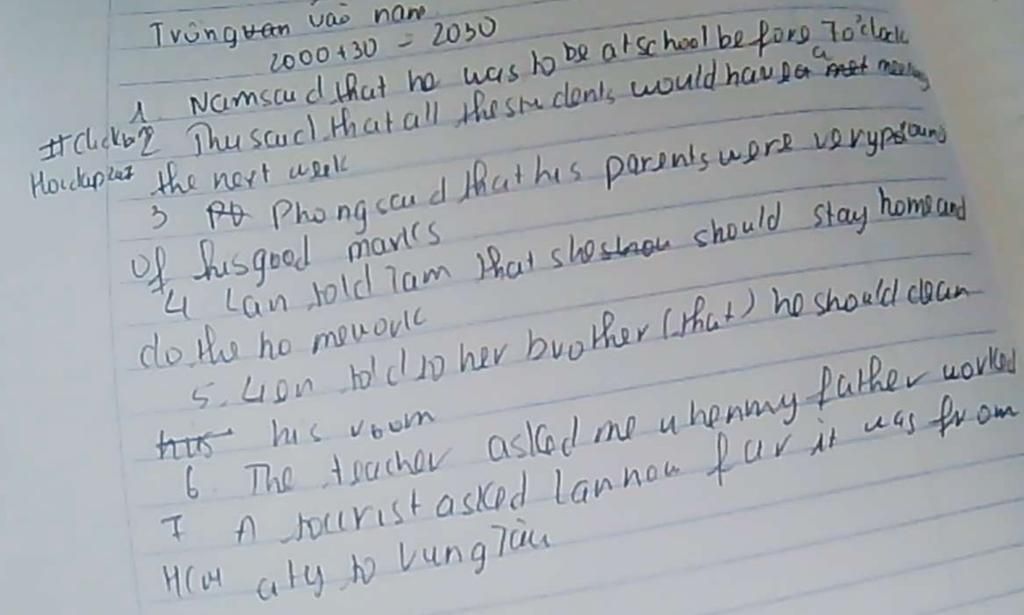 Trông vào năm
2000 + 30 = 2030
1. Nam said that he was to be at school before 7 o'clock
2 Thu said that all the students would have a meeting
the next week
3 Phong said that his parents were very proud
of his good marks
4 Lan told Tam that she should stay home and
do the homework
5. told to her brother (that) he should clean
his room
6. The teacher asked me when my father worked
7 A tourist asked Lan how far it was from
HCM city to Vung Tàu